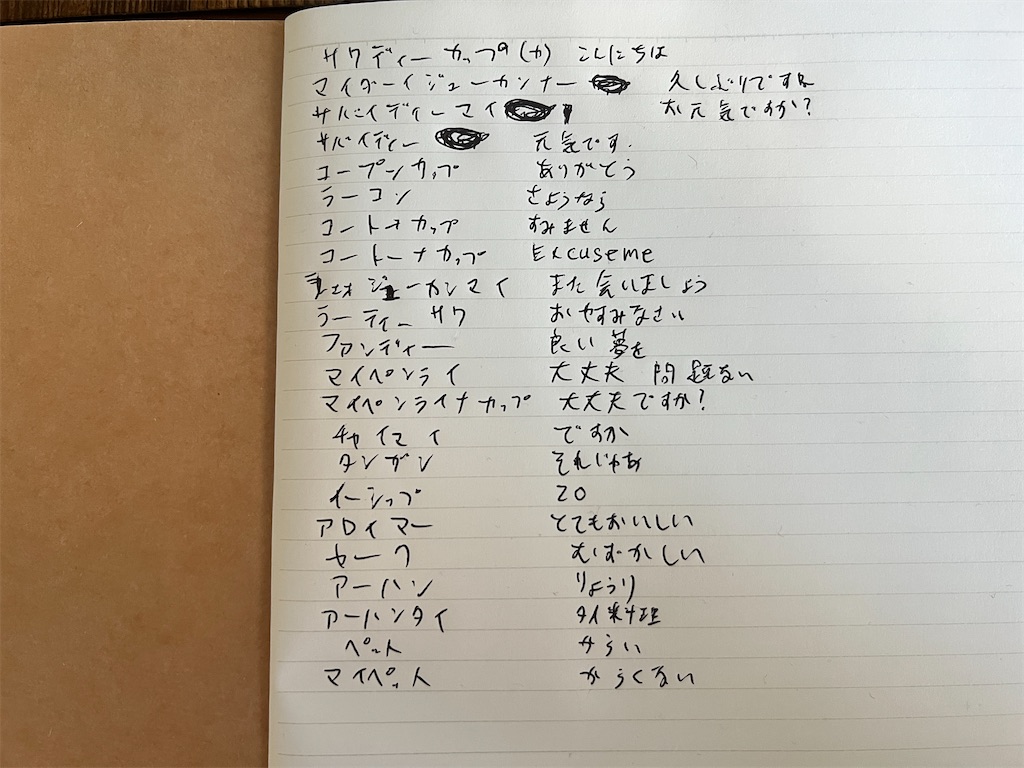 サワディーカップ(カ) こんにちは
マイダーイジューカンナー 久しぶりですね
サバイディーマイ お元気ですか?
サバイディー 元気です.
コープンカップ ありがとう
ラーコン さようなら
コートナカップ すみません
コートーナカップ Excuseme
ジューカンマイ また会いましょう
ラーティーサワ おやすみなさい
ファンディー 良い夢を
マイペンライ 大丈夫 問題ない
マイペンライナカップ 大丈夫ですか?
チャイマイ ですか
タンガン それじゃあ
イーシップ 20
アロイマー とてもおいしい
セーク むずかしい
アーハン りょうり
アーハンタイ タイ料理
ペット からい
マイペット からくない